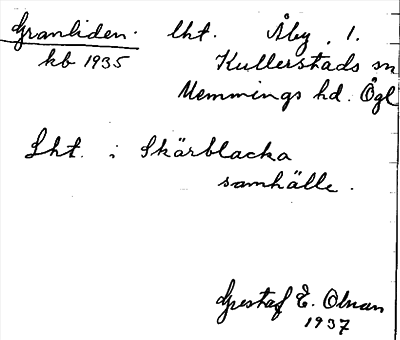 Granliden. lht. Åby. 1.
kb 1935 Kullerstads sn
Memmings hd. Ögl
Lht. i Skärblacka
samhälle.
Gustaf E. Olnan
1937